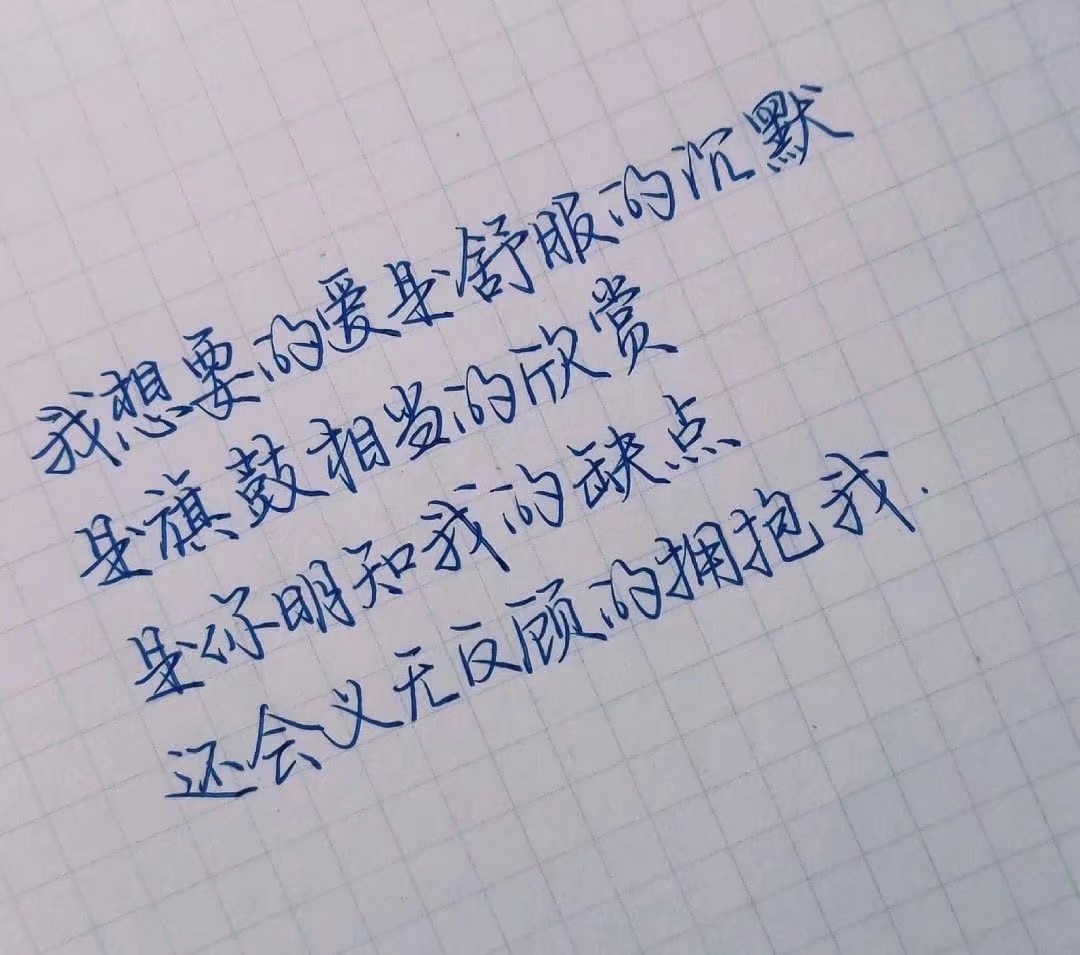 我想要的爱是舒服的沉默
是旗鼓相当的欣赏
是你明知我的缺点
还会义无反顾的拥抱我.